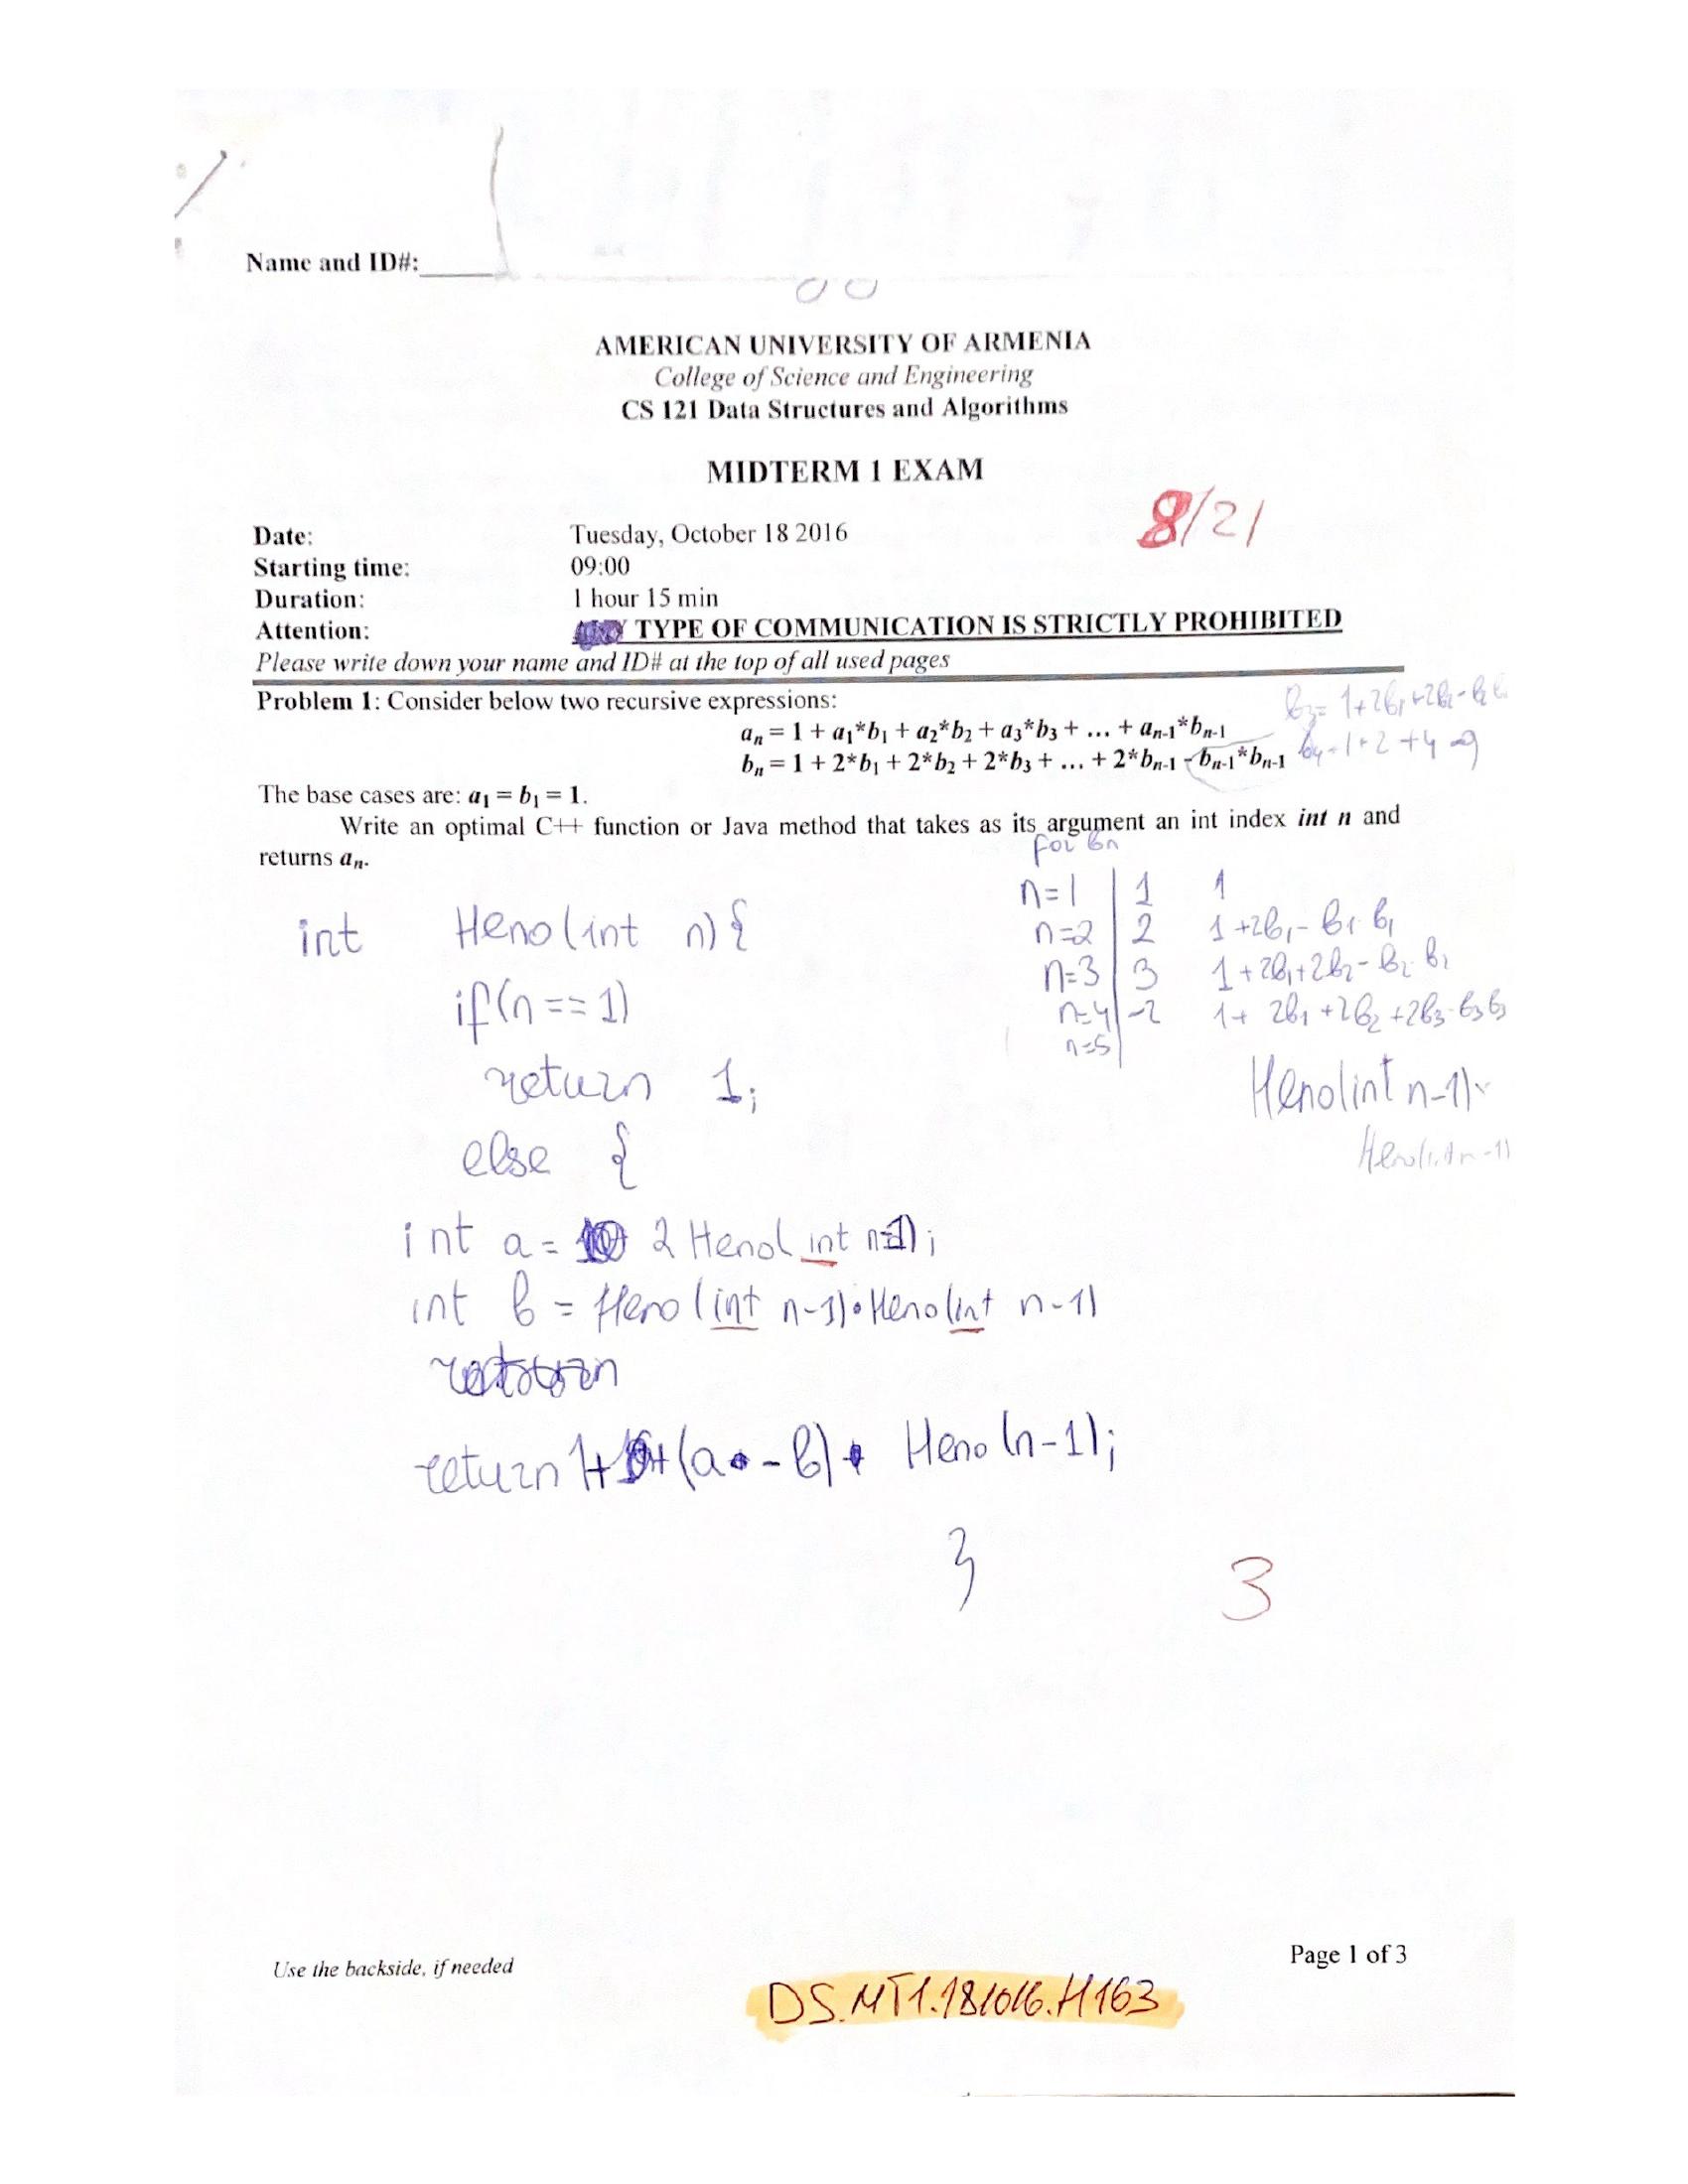 Name and ID#:
AMERICAN UNIVERSITY OF ARMENIA
College of Science and Engineering
CS 121 Data Structures and Algorithms
MIDTERM 1 EXAM
8/21
Date: Tuesday, October 18 2016
Starting time: 09:00
Duration: 1 hour 15 min
Attention: ANY TYPE OF COMMUNICATION IS STRICTLY PROHIBITED
Please write down your name and ID# at the top of all used pages
Problem 1: Consider below two recursive expressions:
b₃= 1+2b₁+2b₂-b₂
aₙ = 1 + a₁*b₁ + a₂*b₂ + a₃*b₃ + ... + aₙ₋₁*bₙ₋₁
bₙ = 1 + 2*b₁ + 2*b₂ + 2*b₃ + ... + 2*bₙ₋₁ - bₙ₋₁*bₙ₋₁
1+2+4-9
The base cases are: a₁ = b₁ = 1.
Write an optimal C++ function or Java method that takes as its argument an int index int n and
returns aₙ.
for bn
n=1 1 1
n=2 2 1+2b₁-b₁·b₁
n=3 3 1+2b₁+2b₂-b₂·b₂
n=4 -2 1+ 2b₁+2b₂+2b₃-b₃b₃
n=5
Heno(int n-1)·
Heno(int n-1)
int Heno(int n) {
if(n == 1)
return 1;
else {
int a = 2 Heno(int n-1);
int b = Heno(int n-1)·Heno(int n-1)
return 1+(a-b)+ Heno(n-1);
}
3
Use the backside, if needed
Page 1 of 3
DS.MT1.181016.H163